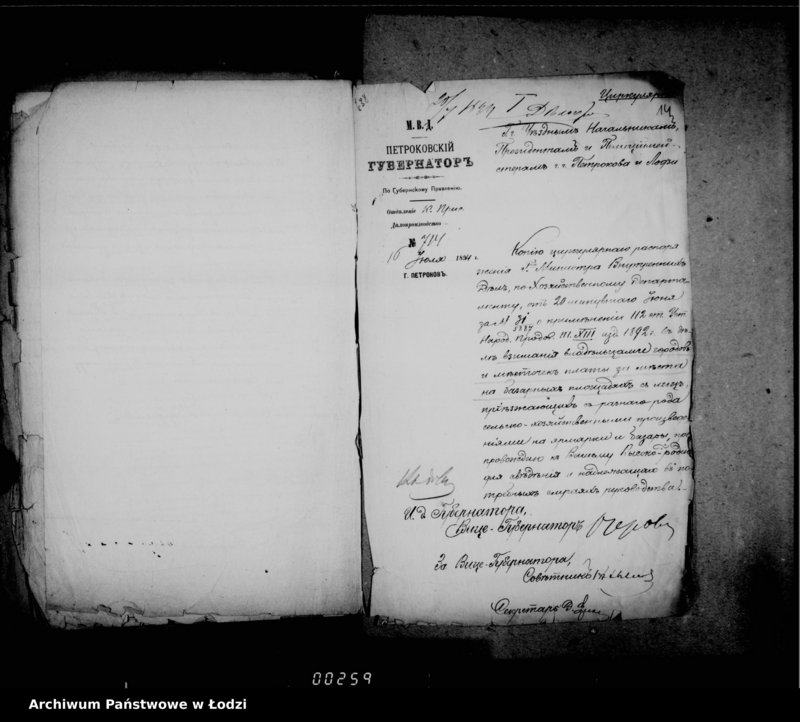 Циркулярно
14
М. В. Д.
ПЕТРОКОВСКІЙ
ГУБЕРНАТОРЪ
По Губернскому Правленію.
Отдѣленіе
Дѣлопроизводство
№ 714
16 Іюля 1894 г.
Г. ПЕТРОКОВЪ.
Г.г. Уѣзднымъ Начальникамъ,
Президентамъ и Полиціймей-
стерамъ г.г. Петрокова и Лодзи
Копію циркулярнаго распоря
женія Г. Министра Внутреннихъ
Дѣлъ, по Хозяйственному Департа
менту, отъ 20 минувшаго Іюня
за № о примѣненіи 112 ст. Уст.
Народ. Продов. т. XIII изд. 1892 г. къ дѣ
ламъ взиманія владѣльцами городовъ
и мѣстечекъ платы за мѣста
на базарныхъ площадяхъ съ лицъ,
пріѣзжающихъ съ разнаго рода
сельско-хозяйственными произведе
ніями на ярмарки и базары, пре
провождаю къ Вашему Высокородію
для свѣдѣнія и надлежащаго въ по
требныхъ случаяхъ руководства.
И. д. Губернатора,
Вице-Губернаторъ
За Вице-Губернатора,
Совѣтникъ
Секретарь
00259
Archiwum Państwowe w Łodzi